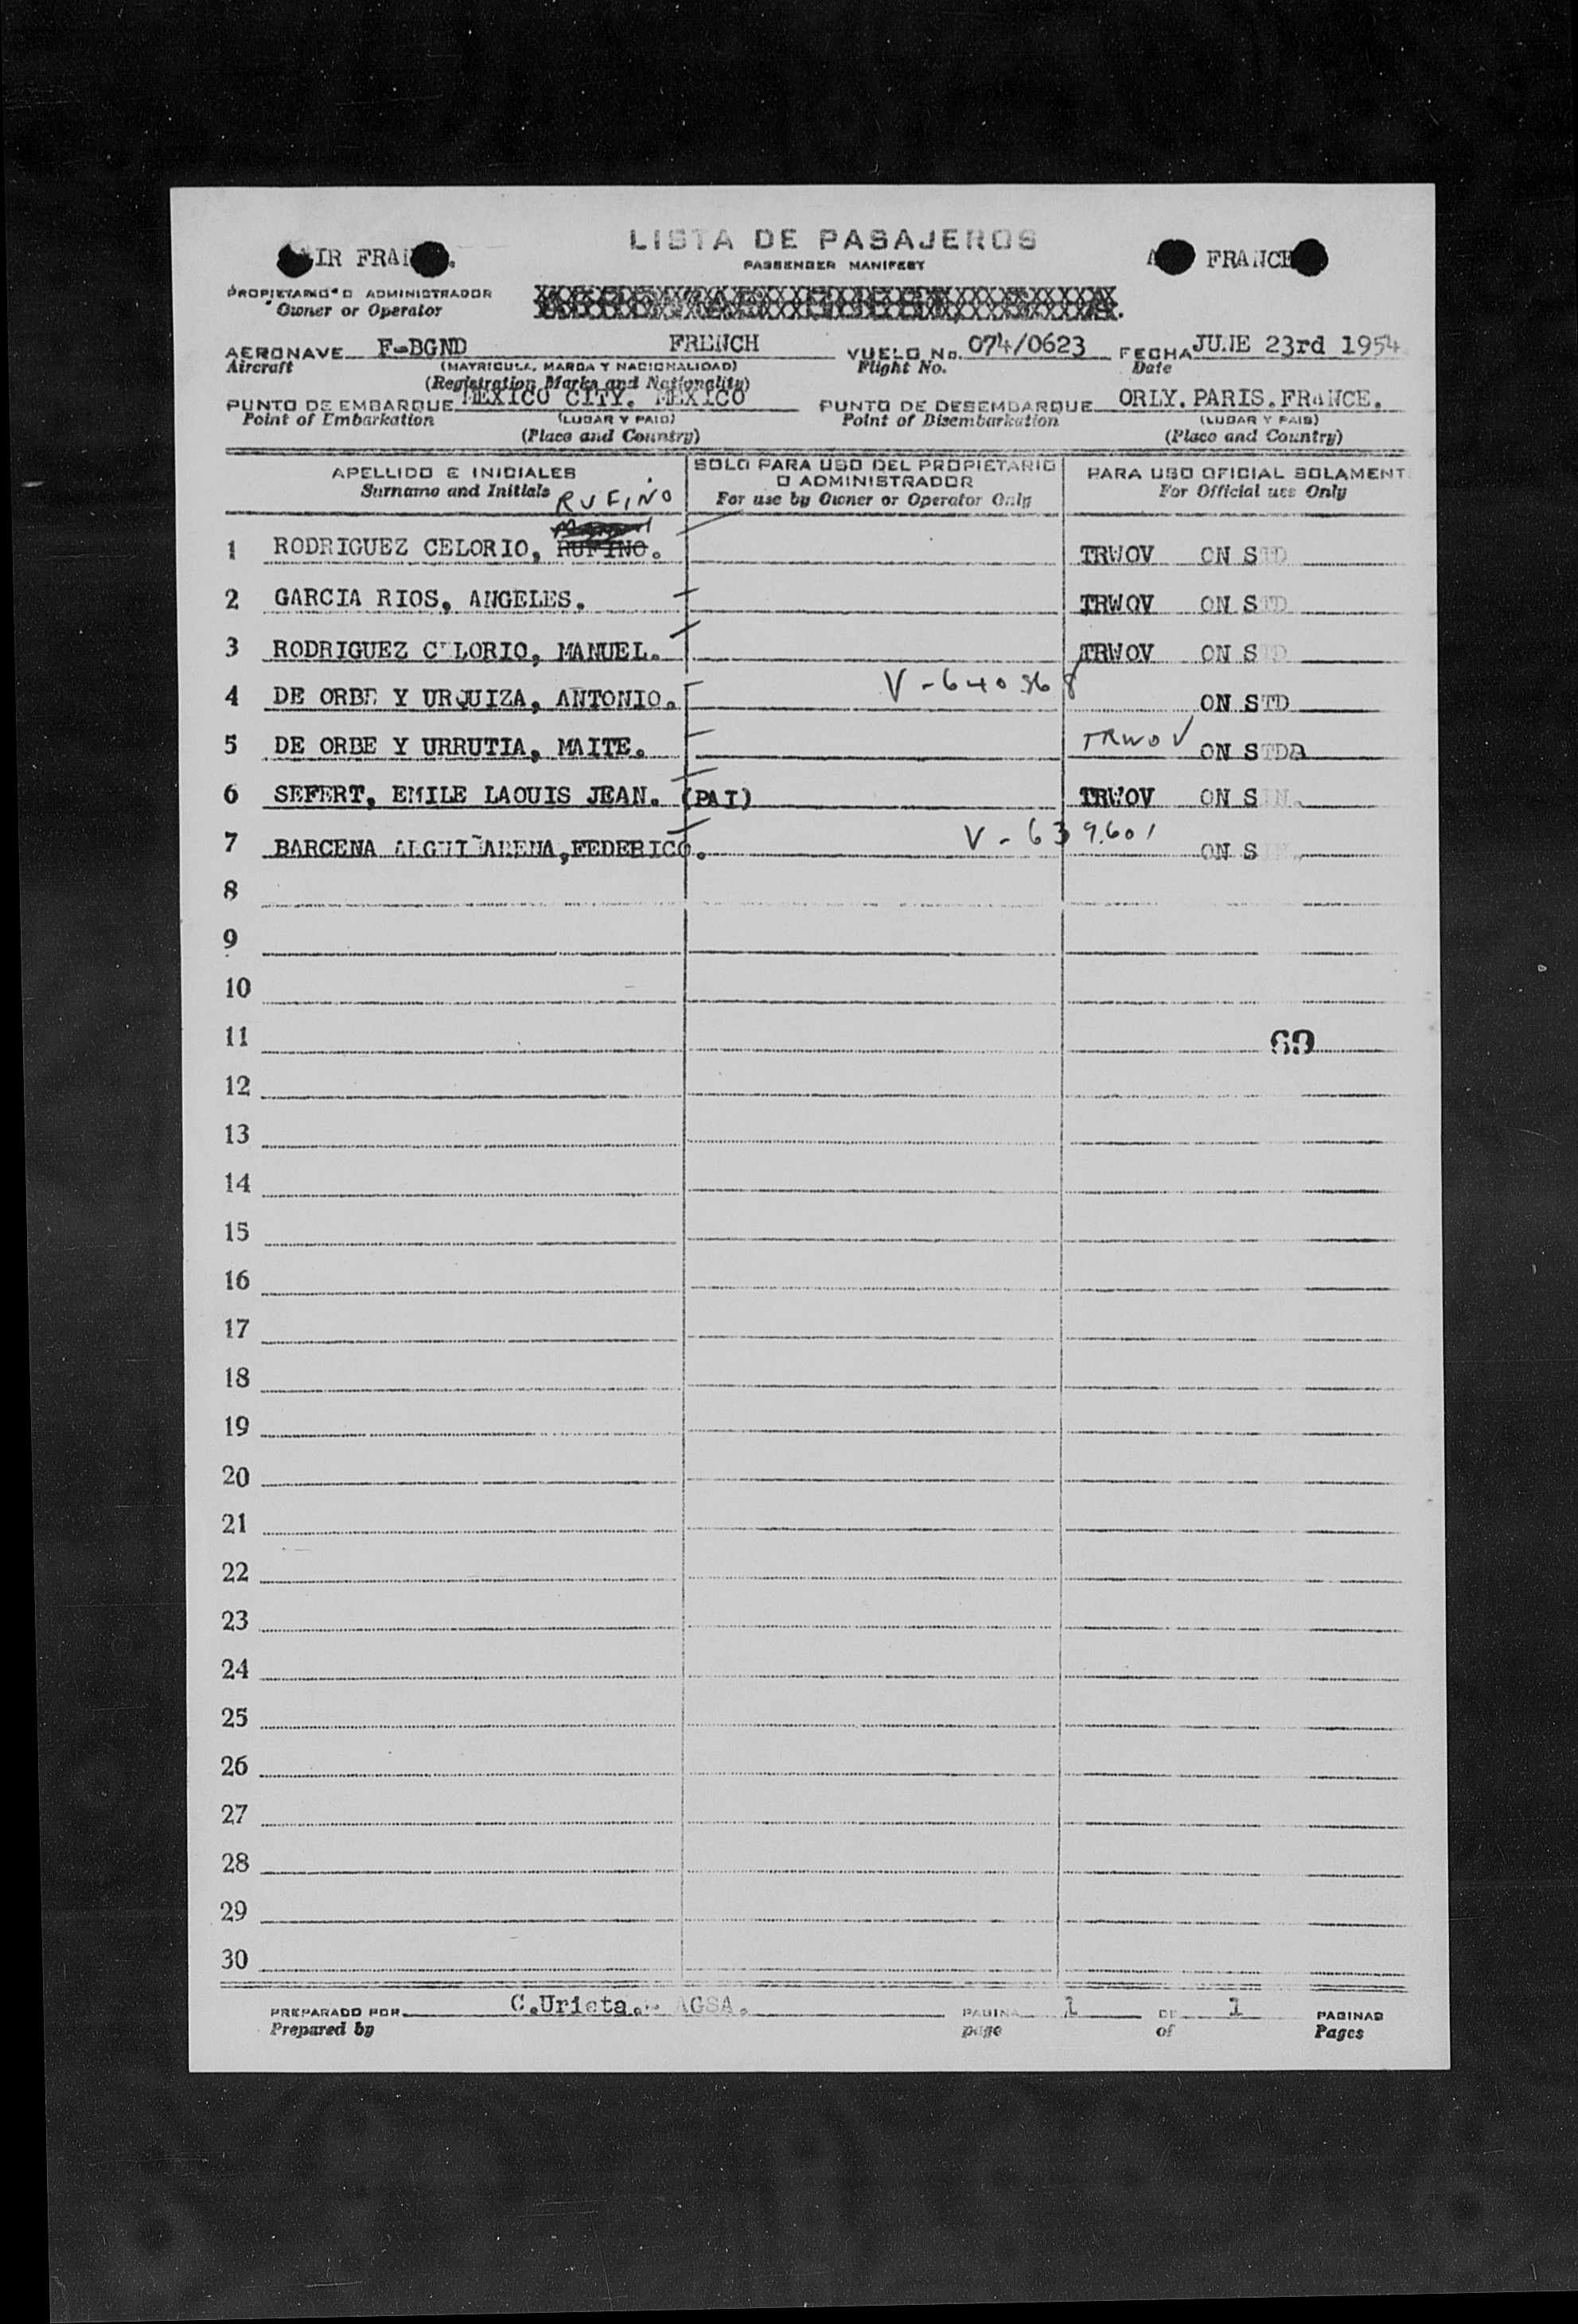 LISTA DE PASAJEROS
PASSENGER MANIFEST
AIR FRANCE
FRANCE
PROPIETARIO O ADMINISTRADOR
Owner or Operator
AERONAVE F-BGND FRENCH VUELO No. 074/0623 FECHA JUNE 23rd 1954
Aircraft (MATRICULA, MARCA Y NACIONALIDAD) Flight No. Date
(Registration Marks and Nationality)
PUNTO DE EMBARQUE MEXICO CITY. MEXICO PUNTO DE DESEMBARQUE ORLY.PARIS.FRANCE.
Point of Embarkation (LUGAR Y PAIS) Point of Disembarkation (LUGAR Y PAIS)
(Place and Country) (Place and Country)
APELLIDO E INICIALES SOLO PARA USO DEL PROPIETARIO O ADMINISTRADOR PARA USO OFICIAL SOLAMENT
Surname and Initials For use by Owner or Operator Only For Official use Only
RUFINO
1 RODRIGUEZ CELORIO, RUFINO. TRWOV ON STD
2 GARCIA RIOS, ANGELES. TRWOV ON STD
3 RODRIGUEZ C LORIO, MANUEL. TRWOV ON STD
4 DE ORBE Y URQUIZA, ANTONIO. V-640368 ON STD
5 DE ORBE Y URRUTIA, MAITE. TRWOV ON STD
6 SEFERT, EMILE LAOUIS JEAN. (PAI) TRWOV ON S
7 BARCENA FEDERICO. V-639601 ON S
8
9
10
11 69
12
13
14
15
16
17
18
19
20
21
22
23
24
25
26
27
28
29
30
PREPARADO POR C.Urieta.- AGSA. PAGINA 1 DE 1 PAGINAS
Prepared by page of Pages